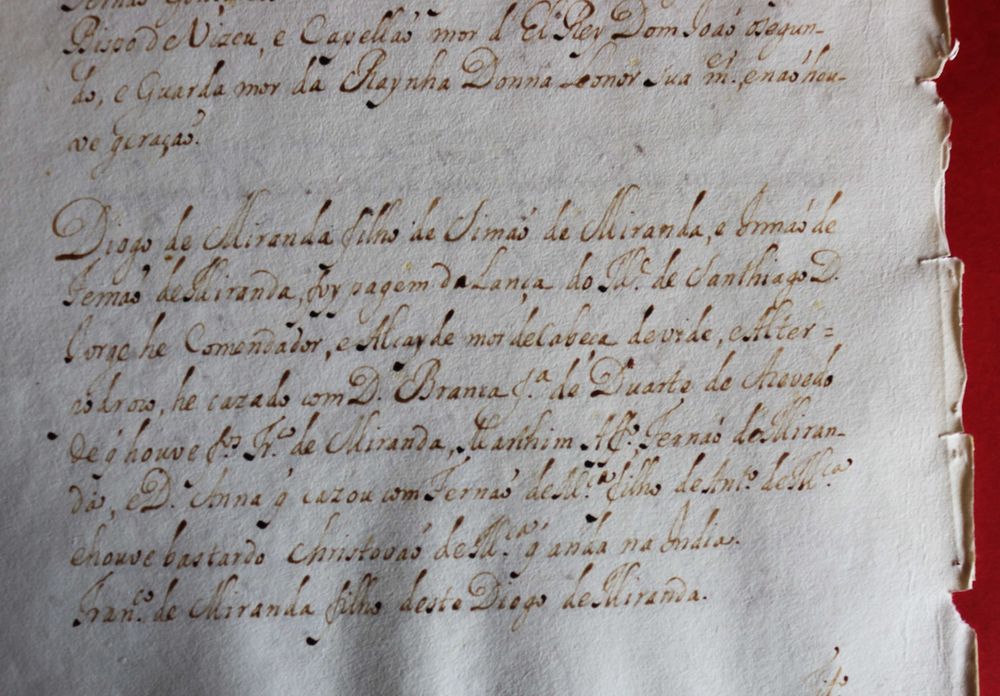 Bispo de Vizeu, e Capellaõ mor d'El Rey Dom Joaõ o segun-
do, e Guarda mor da Raynha Donna Leonor sua m.er, e naõ hou-
ve geraçaõ.
Diogo de Miranda filho de Simaõ de Miranda, e Irmaõ de
Fernaõ de Miranda, foy pagem da Lança do M.e de Santhiago D.
Jorge he Comendador, e Alcayde mor de Cabeça de vide, e Alter=
he cazado com D. Branca f.a de Duarte de Azevedo
de q̃ houve f.os Fr.co de Miranda, Marthim Aff.o, Fernaõ de Miran-
da, e D. Anna q̃ cazou com Fernaõ de M.ca filho de Ant.o de M.ca
e houve bastardo Christovaõ de M.ca q̃ anda na India.
Fran.co de Miranda filho deste Diogo de Miranda.